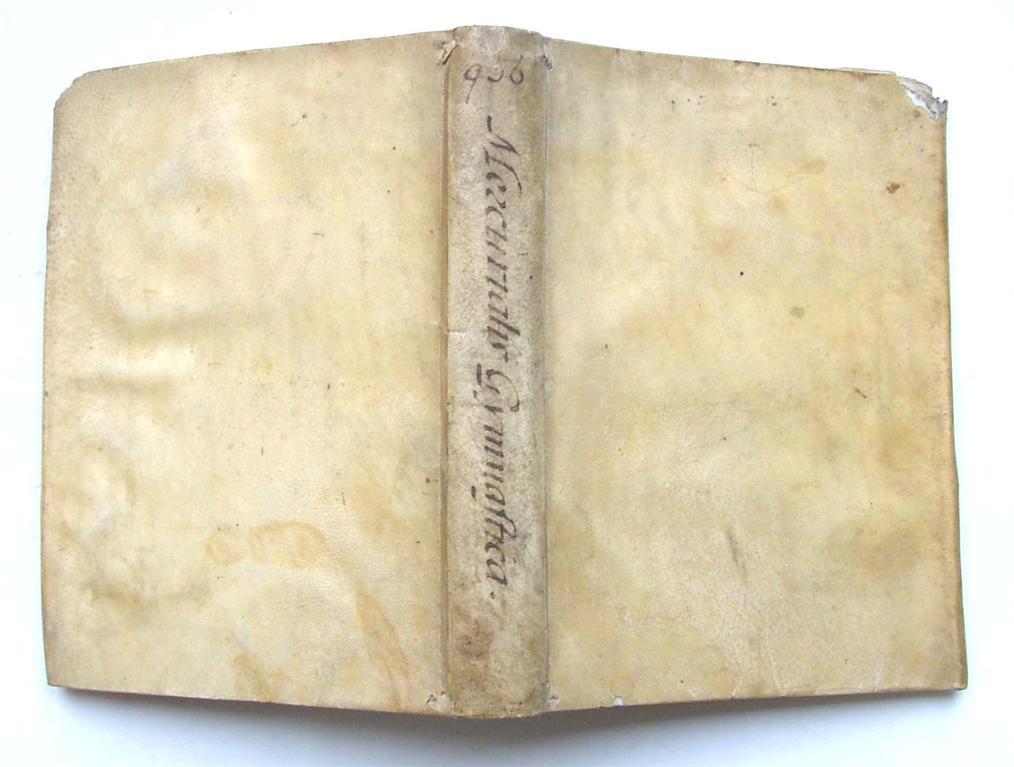 906
Mercurialis Gymnastica.